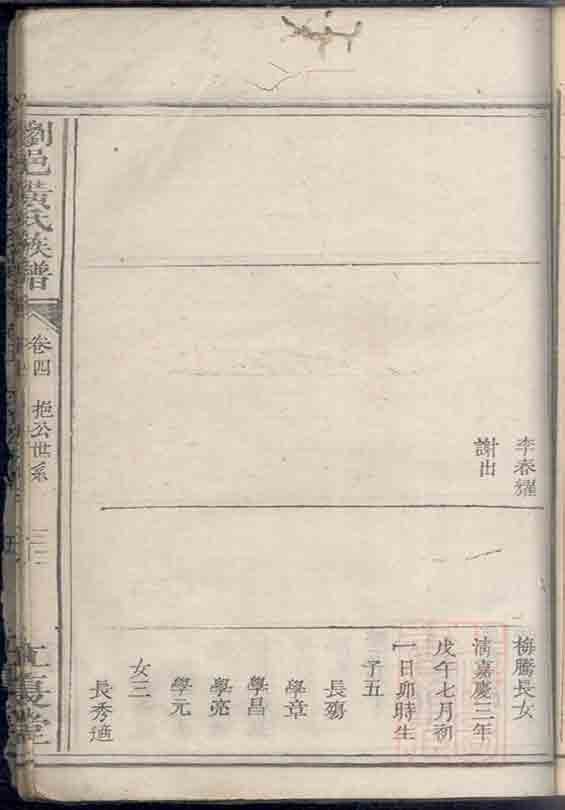 李春耀
謝出
梅騰長女
淸嘉慶三年
戊午七月初
一日卯時生
子五
長殤
學章
學昌
學亮
學元
女三
長秀適
劉邑黄氏族譜
卷四
抱公世系